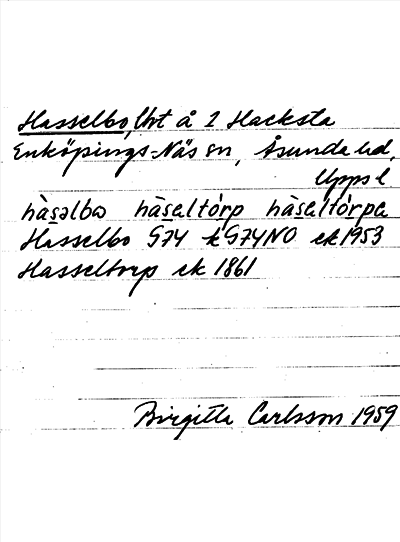 Hasselbo, lht å 2 Hacksta
Enköpings-Näs sn, Åsunda hd,
Upps l
hàsəlbω hàsəltórp hàsəltórpa
Hasselbo G74 k G74NO ek 1953
Hasseltorp ek 1861
Birgitta Carlsson 1959